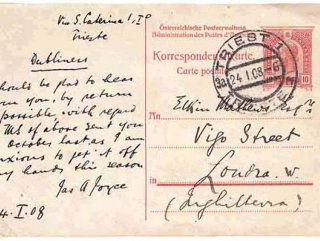 Via S. Caterina 1, I°
Trieste
Dubliners
hould be glad to hear
om you, by return
possible, with regard
MS of above sent you
October last as I am
nxious to get it off
my hands this season
Jas A Joyce
4. I. 08
Österreichische Postverwaltung
Administration des Postes d'
Korrespondenzkarte
Carte postale
TRIEST 1
24 I 08
10
Elkin Mathews Esqre
Vigo Street
Londra. W.
(Inghilterra)
An
In